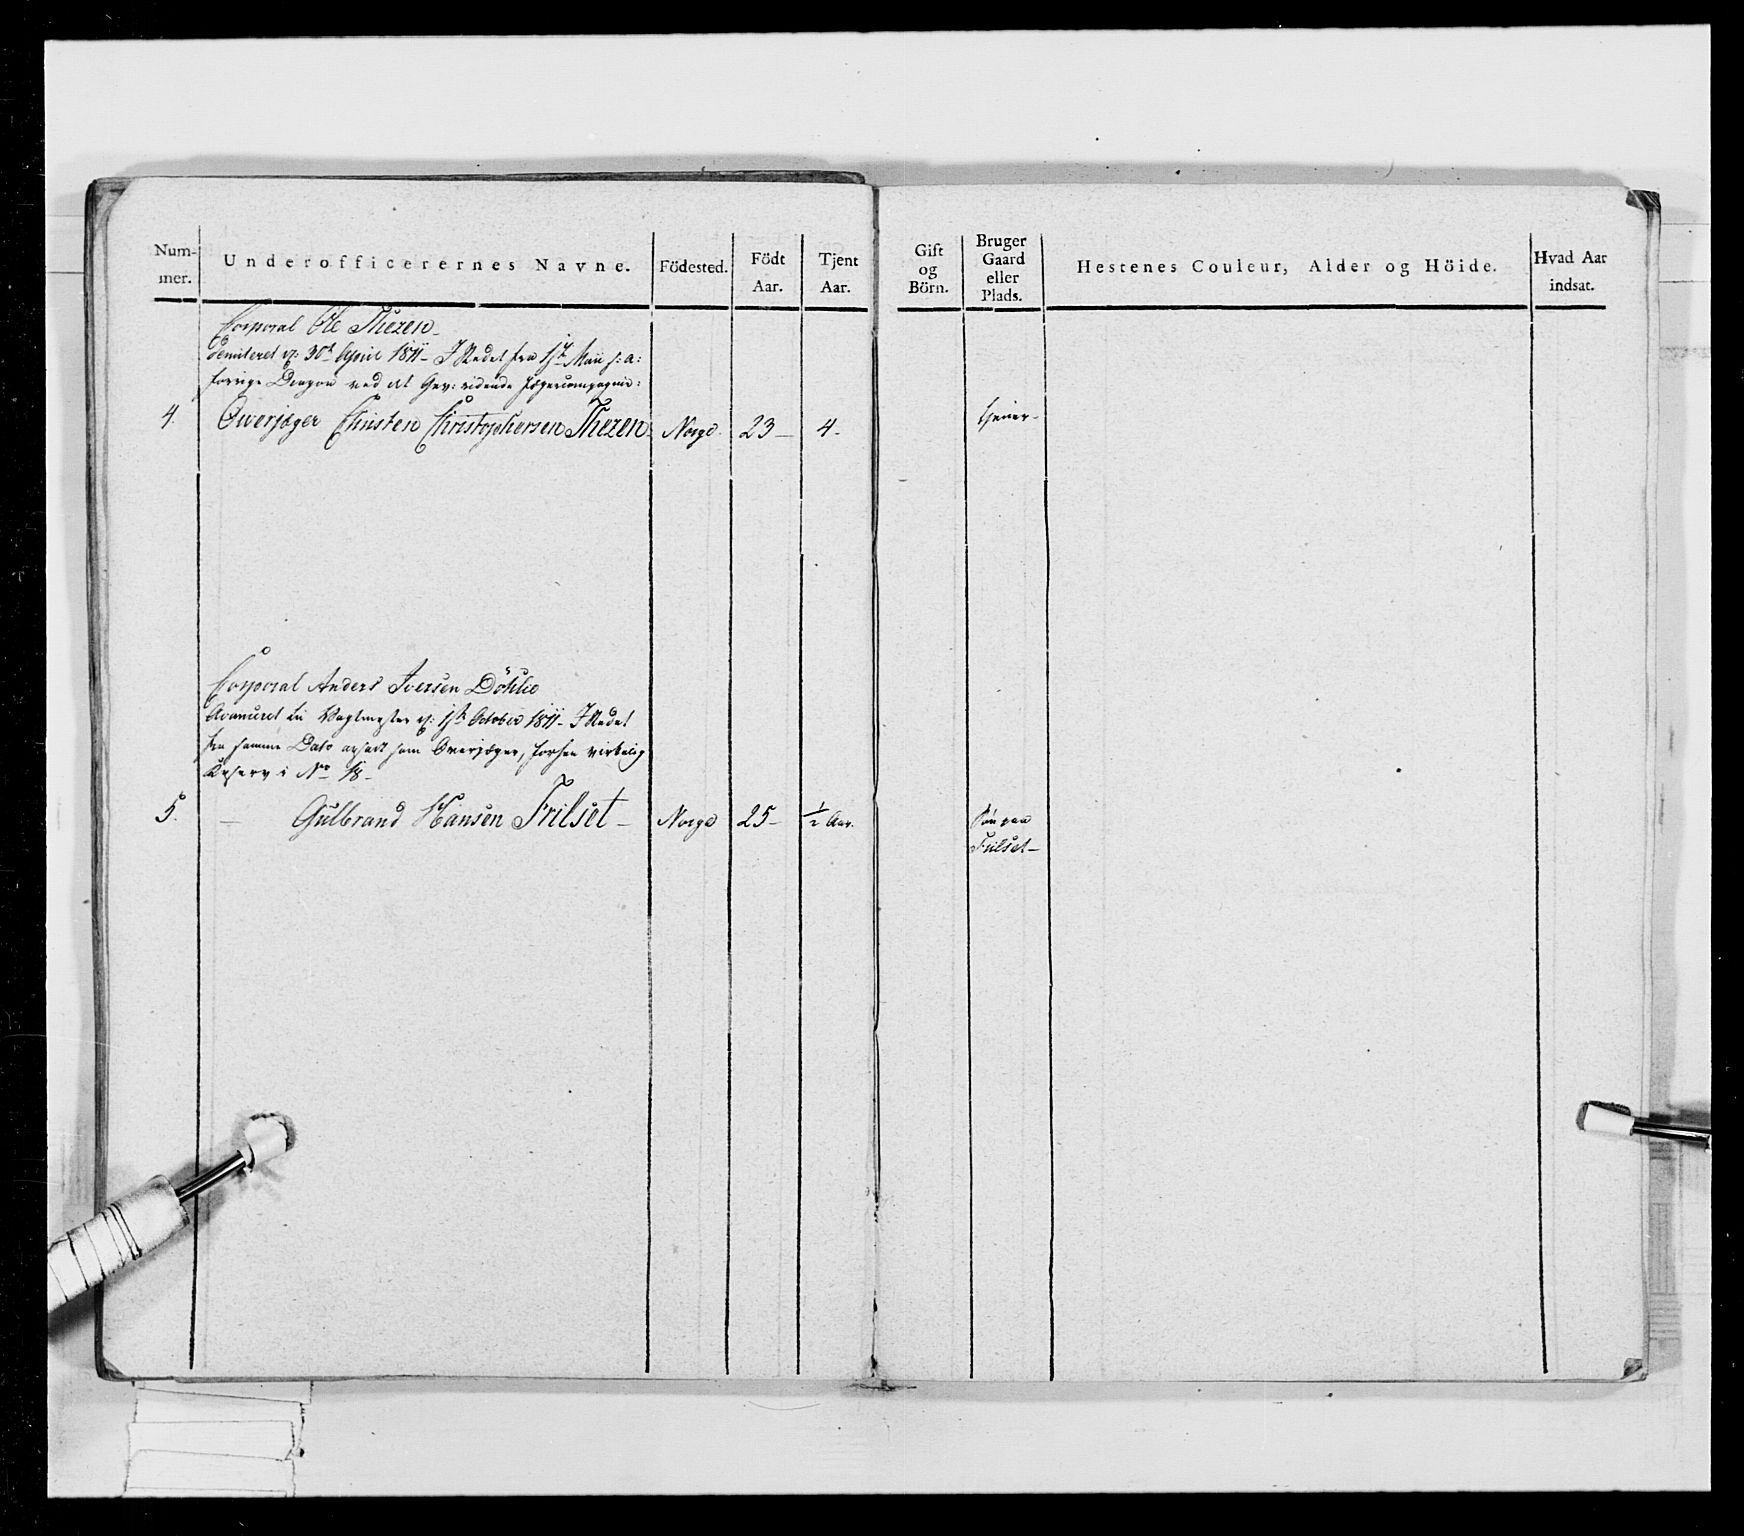 Num-
mer.
Underofficerernes Navne.
Födested.
Födt
Aar.
Tjent
Aar.
Gift
og
Börn.
Bruger
Gaard
eller
Plads.
Hestenes Couleur, Alder og Höide.
Hvad Aar
indsat.
Corporal Ole Thezen
demiteret d: 30t April 1811 – I Stedet fra 1ste Maii s: a:
forrige Dragon ved det Gev: ridende Jægercompagnie:
4. Overjæger Christen Christophersen Thezen Norge 23 – 4. tjener –
Corporal Anders Iversen Döhlie
Avanceret til Vagtmester d: 1ste October 1811 – I Stedet
fra samme Dato ansadt som Overjæger, forhen virkelig
Reserv i No 18 –
5. – Gulbrand Hansen Frilset – Norge 25 – 1/2 Aar. Sön paa
Frilset –